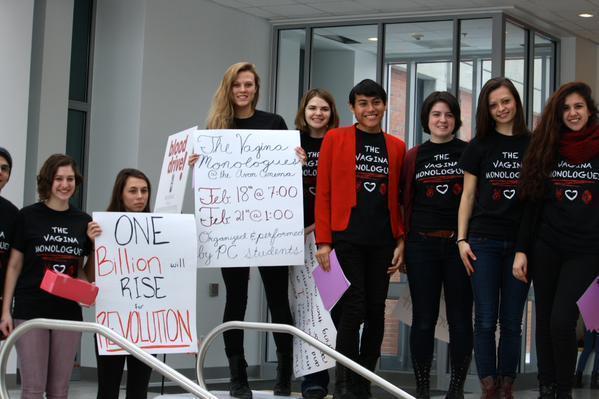 blood
drive!
The Vagina
Monologues
@ the Avon Cinema
Feb 18th @ 7:00
Feb 21st @ 1:00
Organized & performed
by PC students
ONE
Billion will
RISE
for
REVOLUTION
THE
VAGINA
MONOLOGUES
THE
VAGINA
MONOLOGUE
THE
VAGINA
MONOLOGUES
THE
VAGINA
MONOLOGUES
THE
VAGINA
MONOLOGUES